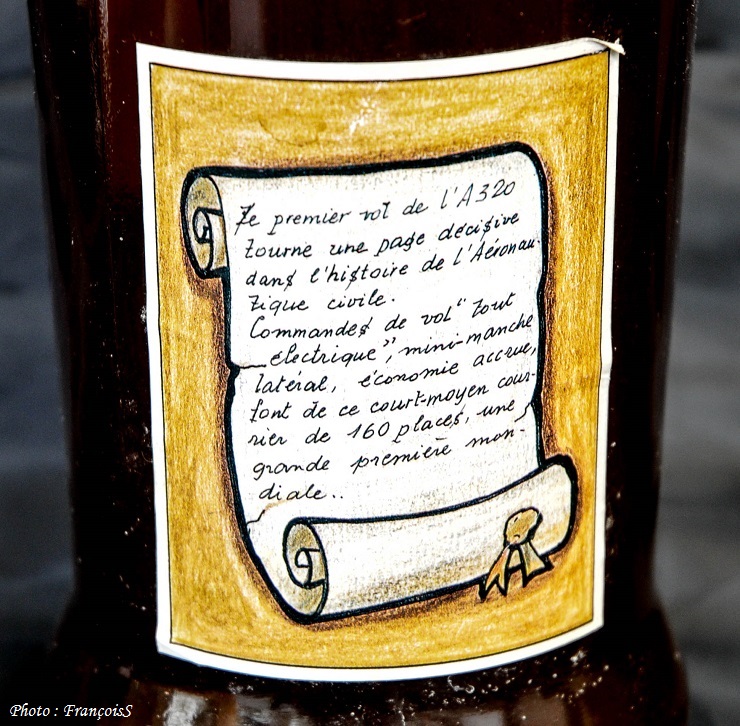 Le premier vol de l'A320
tourne une page décisive
dans l'histoire de l'Aéronau-
tique civile.
Commandes de vol "tout
électrique", mini-manche
latéral, économie accrue,
font de ce court-moyen cour-
rier de 160 places, une
grande première mon-
diale..
Photo : FrançoisS